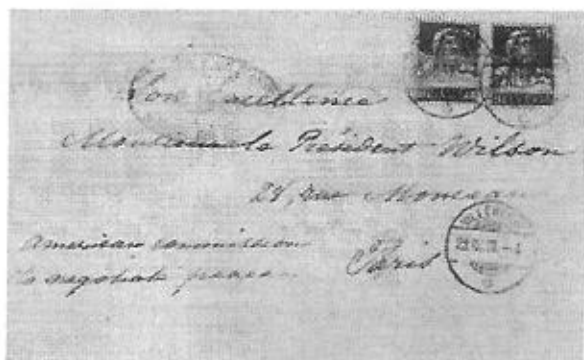 Son Excellence
Monsieur le Président Wilson
28, rue Monceau
Paris
American commission
to negotiate peace